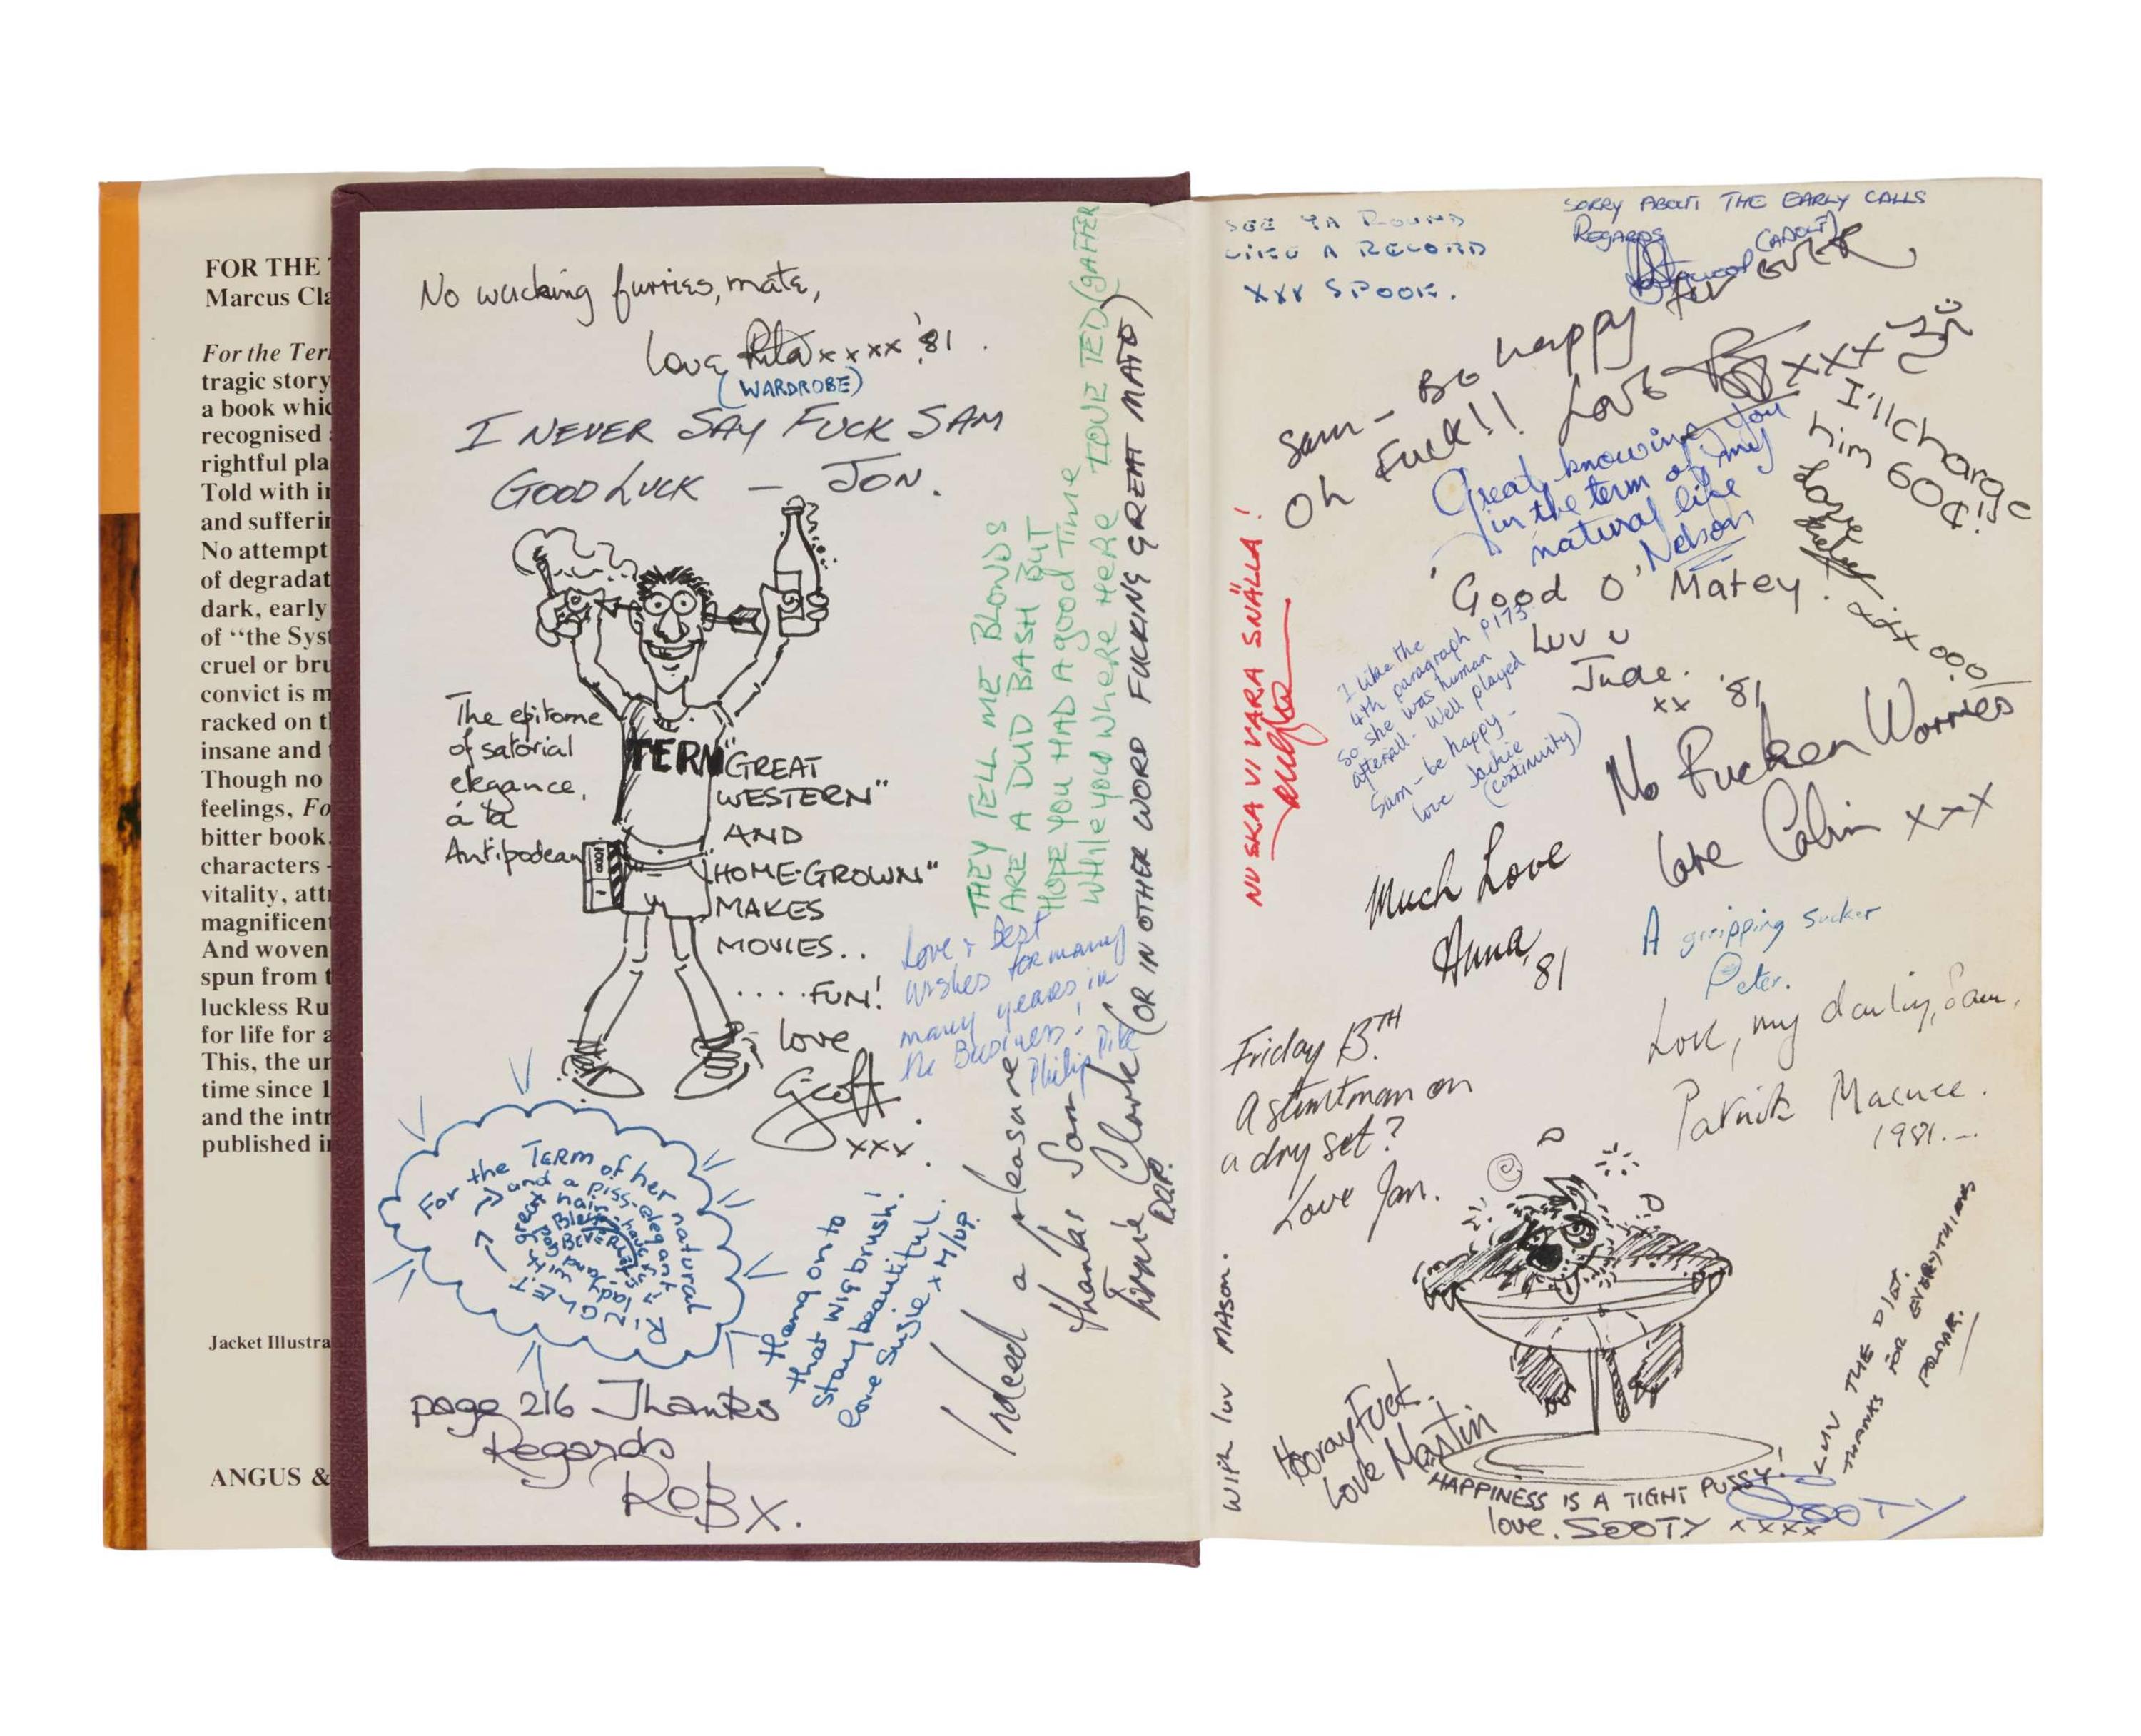 FOR THE
Marcus Cla
For the Ter
tragic story
a book whic
recognised
rightful pla
Told with in
and sufferin
No attempt
of degradat
dark, early
of “the Syst
cruel or bru
convict is m
racked on t
insane and
Though no
feelings, Fo
bitter book.
characters -
vitality, attr
magnificent
And woven
spun from t
luckless Ru
for life for a
This, the un
time since 1
and the intr
published i
Jacket Illustra
ANGUS &
No wucking furries, mate,
love Rita xxxx '81.
(WARDROBE)
I NEVER SAY FUCK SAM
GOOD LUCK — JON.
The epitome
of satorial
elegance,
à la
Antipodean
TERM
"GREAT
WESTERN"
AND
HOME-GROWN"
MAKES
MOVIES..
....FUN!
love
Geoff
xxx.
For the TERM of her natural
and a piss-elegant
great hair
RINGLET
lady with
page 216 Thanks
Regards
ROBX.
Hang on to
that wig brush!
Stay beautiful.
love Suzie x M/up
Love & Best
wishes for many
many years in
the Business!
Philip
THEY TELL ME BLONDS
ARE A DUD BASH BUT
HOPE YOU HAD A good Time
WHILE YOU WHERE HERE LOVE TED (gAFFER
Indeed a pleasure
thanks Sam
Clark (OR IN OTHER WORD FUCKING GREAT MATE)
SEE YA ROUND
LIKE A RECORD
XXX SPOOK.
SORRY ABOUT THE EARLY CALLS
Regards
(ADOLF)
Sam - Be happy for EVER
Oh Fuck!! Love
xxx
I'll charge
him 60¢!!
Love
xxx ooo
Great knowing you
in the term of my
natural life
Nelson
'Good O' Matey!
Luv u
Jude.
xx '81
I like the
4th paragraph p175
So she was human
afterall. Well played
Sam - be happy -
love Jackie
(continuity)
NU SKA VI VARA SNÄLLA!
No Fucken Worries
love Colin xxx
Much Love
Anna '81
A gripping sucker
Peter.
Love, my darling, Sam,
Patrick Macnee.
1981.
Friday 13TH
A stuntman on
a dry set?
Love Jan.
With luv MASON.
Hooray Fuck.
love Martin
HAPPINESS IS A TIGHT PUSSY!
love. SOOTY xxxx
LUV THE DIET.
THANKS FOR EVERYTHING
SOOTY